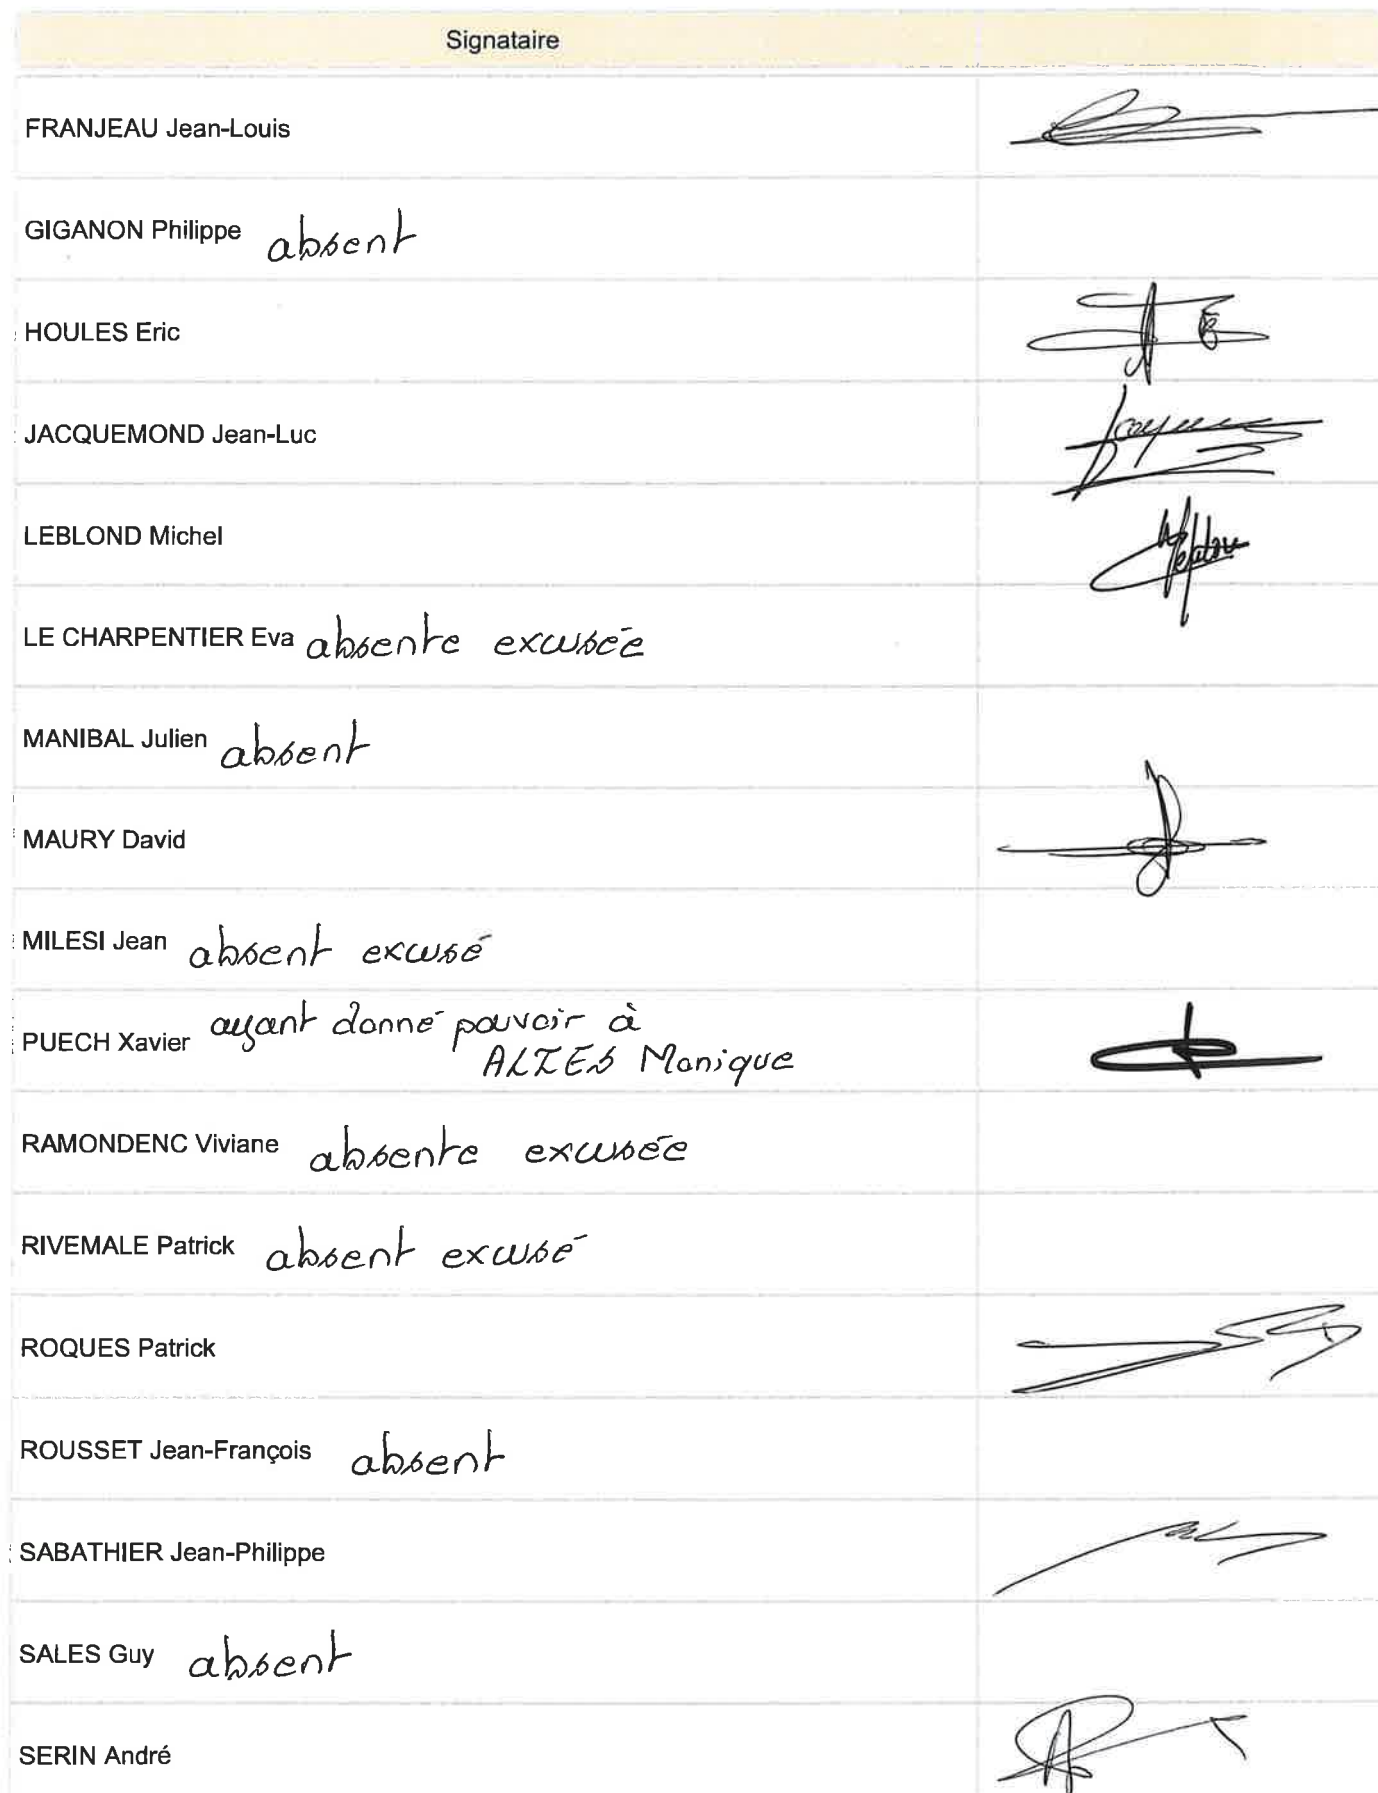 Signataire
FRANJEAU Jean-Louis
GIGANON Philippe absent
HOULES Eric
JACQUEMOND Jean-Luc
LEBLOND Michel
LE CHARPENTIER Eva absente excusée
MANIBAL Julien absent
MAURY David
MILESI Jean absent excusé
PUECH Xavier ayant donné pouvoir à
ALIES Monique
RAMONDENC Viviane absente excusée
RIVEMALE Patrick absent excusé
ROQUES Patrick
ROUSSET Jean-François absent
SABATHIER Jean-Philippe
SALES Guy absent
SERIN André